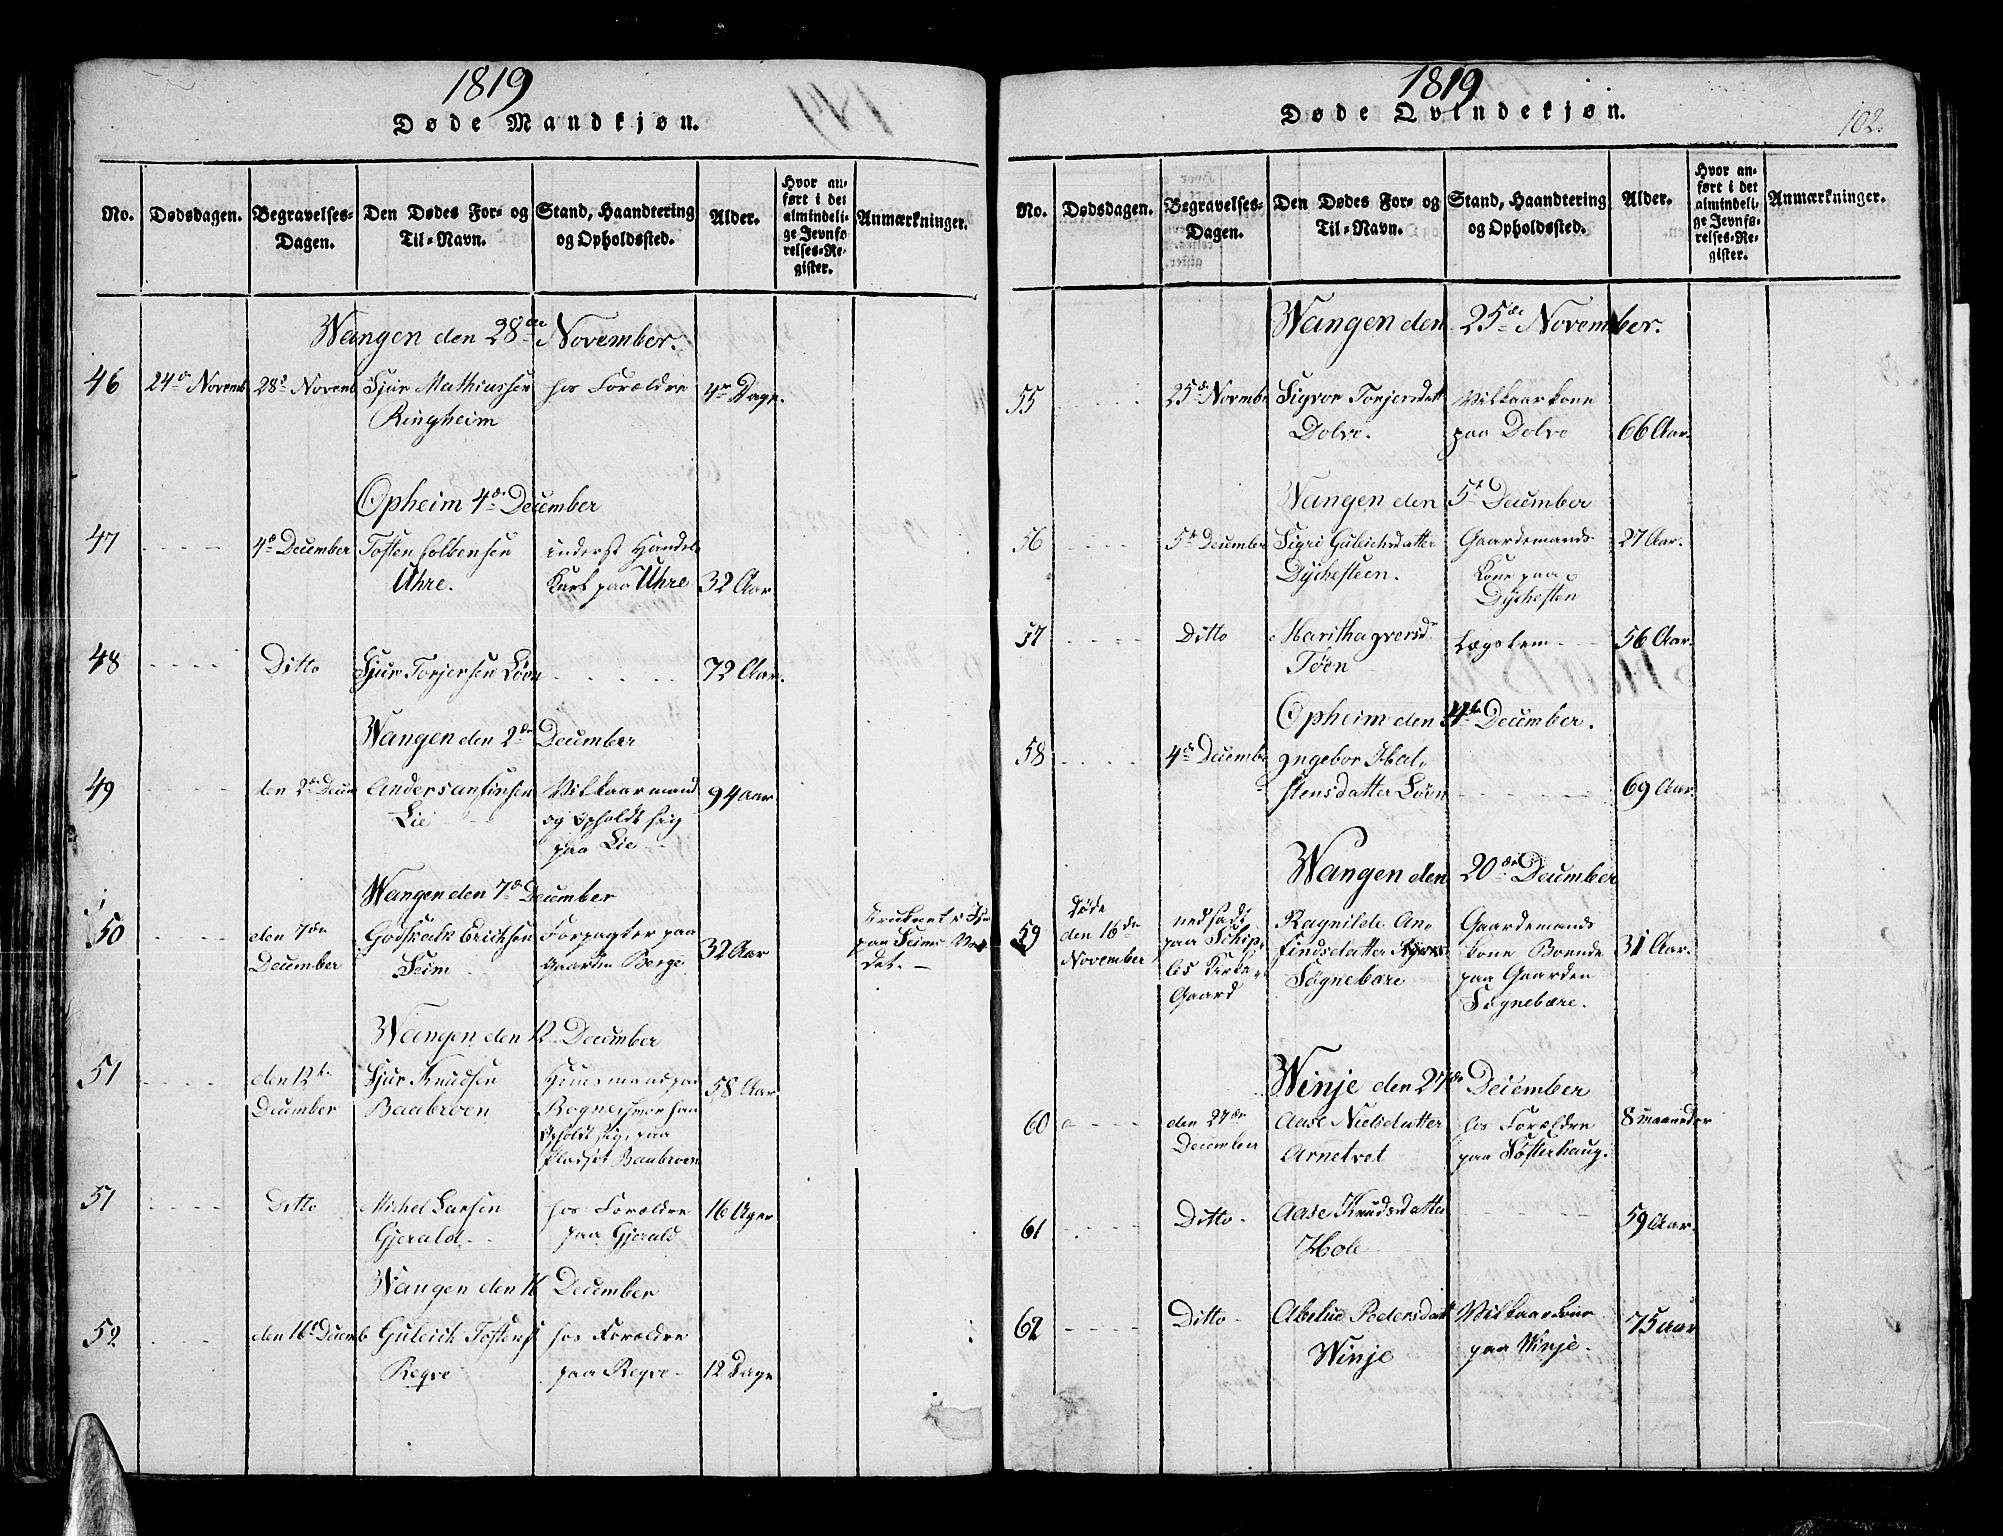 1819
Døde Mandkjøn.
No.
Dødsdagen.
Begravelses-
Dagen.
Den Dødes For- og
Til-Navn.
Stand, Haandtering
og Opholdssted.
Alder.
Hvor an-
ført i det
almindeli-
ge Jevnfø-
relses-Re-
gister.
Anmærkninger.
Wangen den 28de November.
46
24de Novemb
28de Novemb
Sjur Mathiassen
Ringheim
hos Forældre
4re Dage.
Opheim 4de December
47
4de December
Tosten Colbensen
Uhre.
inderst Handels
Karl paa Uhre
32 Aar
48
Ditto
Sjur Torjersen Løn
72 Aar.
Wangen den 2den December
49
den 2den Decem
Anders Anfinsen
Lie
Vilkaarmand
og opholdt sig
paa Lie
94 aar
Wangen den 7de December
50
den 7de
December
Godskalk Erichsen
Seim
Forpagter paa
Gaarden Berge
32 Aar
paa Seims
det.
Wangen den 12 December
51
den 12te
December
Sjur Knudsen
Baabroen
Huusmand paa
opholdt sig paa
Pladset Baabroen
58 Aar
51
Ditto
Michel Larsen
Gjerald
hos Forældre
paa Gjerald
16 Uger
Wangen den 16 December
52
den 16de Decemb
Guleich Tostens
Reqve
hos Forældre
paa Reqve
12 Dage
1819
Døde Qvindekjøn.
102.
No.
Dødsdagen.
Begravelses-
Dagen.
Den Dødes For- og
Til-Navn.
Stand, Haandtering
og Opholdssted.
Alder.
Hvor an-
ført i det
almindeli-
ge Jevnfø-
relses-Re-
gister.
Anmærkninger.
Wangen den 25de November.
55
25de Novembe
Sigvor Torjersdatt
Dolve.
Vilkaarkone
paa Dolve
66 Aar.
Wangen den 5te December
56
5te December
Sigri Guleichsdatter
Dÿchesteen.
Gaardemands
Kone paa
Dÿchesten
27 Aar.
57
Ditto
Tøen
Lægslem
56 Aar
Opheim den 4de December.
58
4de Decembe
Ingebor Hal-
stensdatter Løn
69 Aar
Wangen den 20de December
59
døde
den 16de
November
nedsadt
paa Schip-
lis Kirke-
Gaard
Ragnilde An-
findsdatter
Søgnebære
Gaardemands
kone Boende
paa Gaarden
Søgnebære.
31 Aar.
Winje den 27de December
60
den 27de
December
Aase Nielsdatter
Arnetvet
hos Forældre
paa Tosterhaug.
8 maaneder
61
Ditto
Aase Knudsdatter
Hole
59 Aar.
62
Ditto
Abelud Pedersdatt
Winje
Vilkaarkone
paa Winje.
75 aar